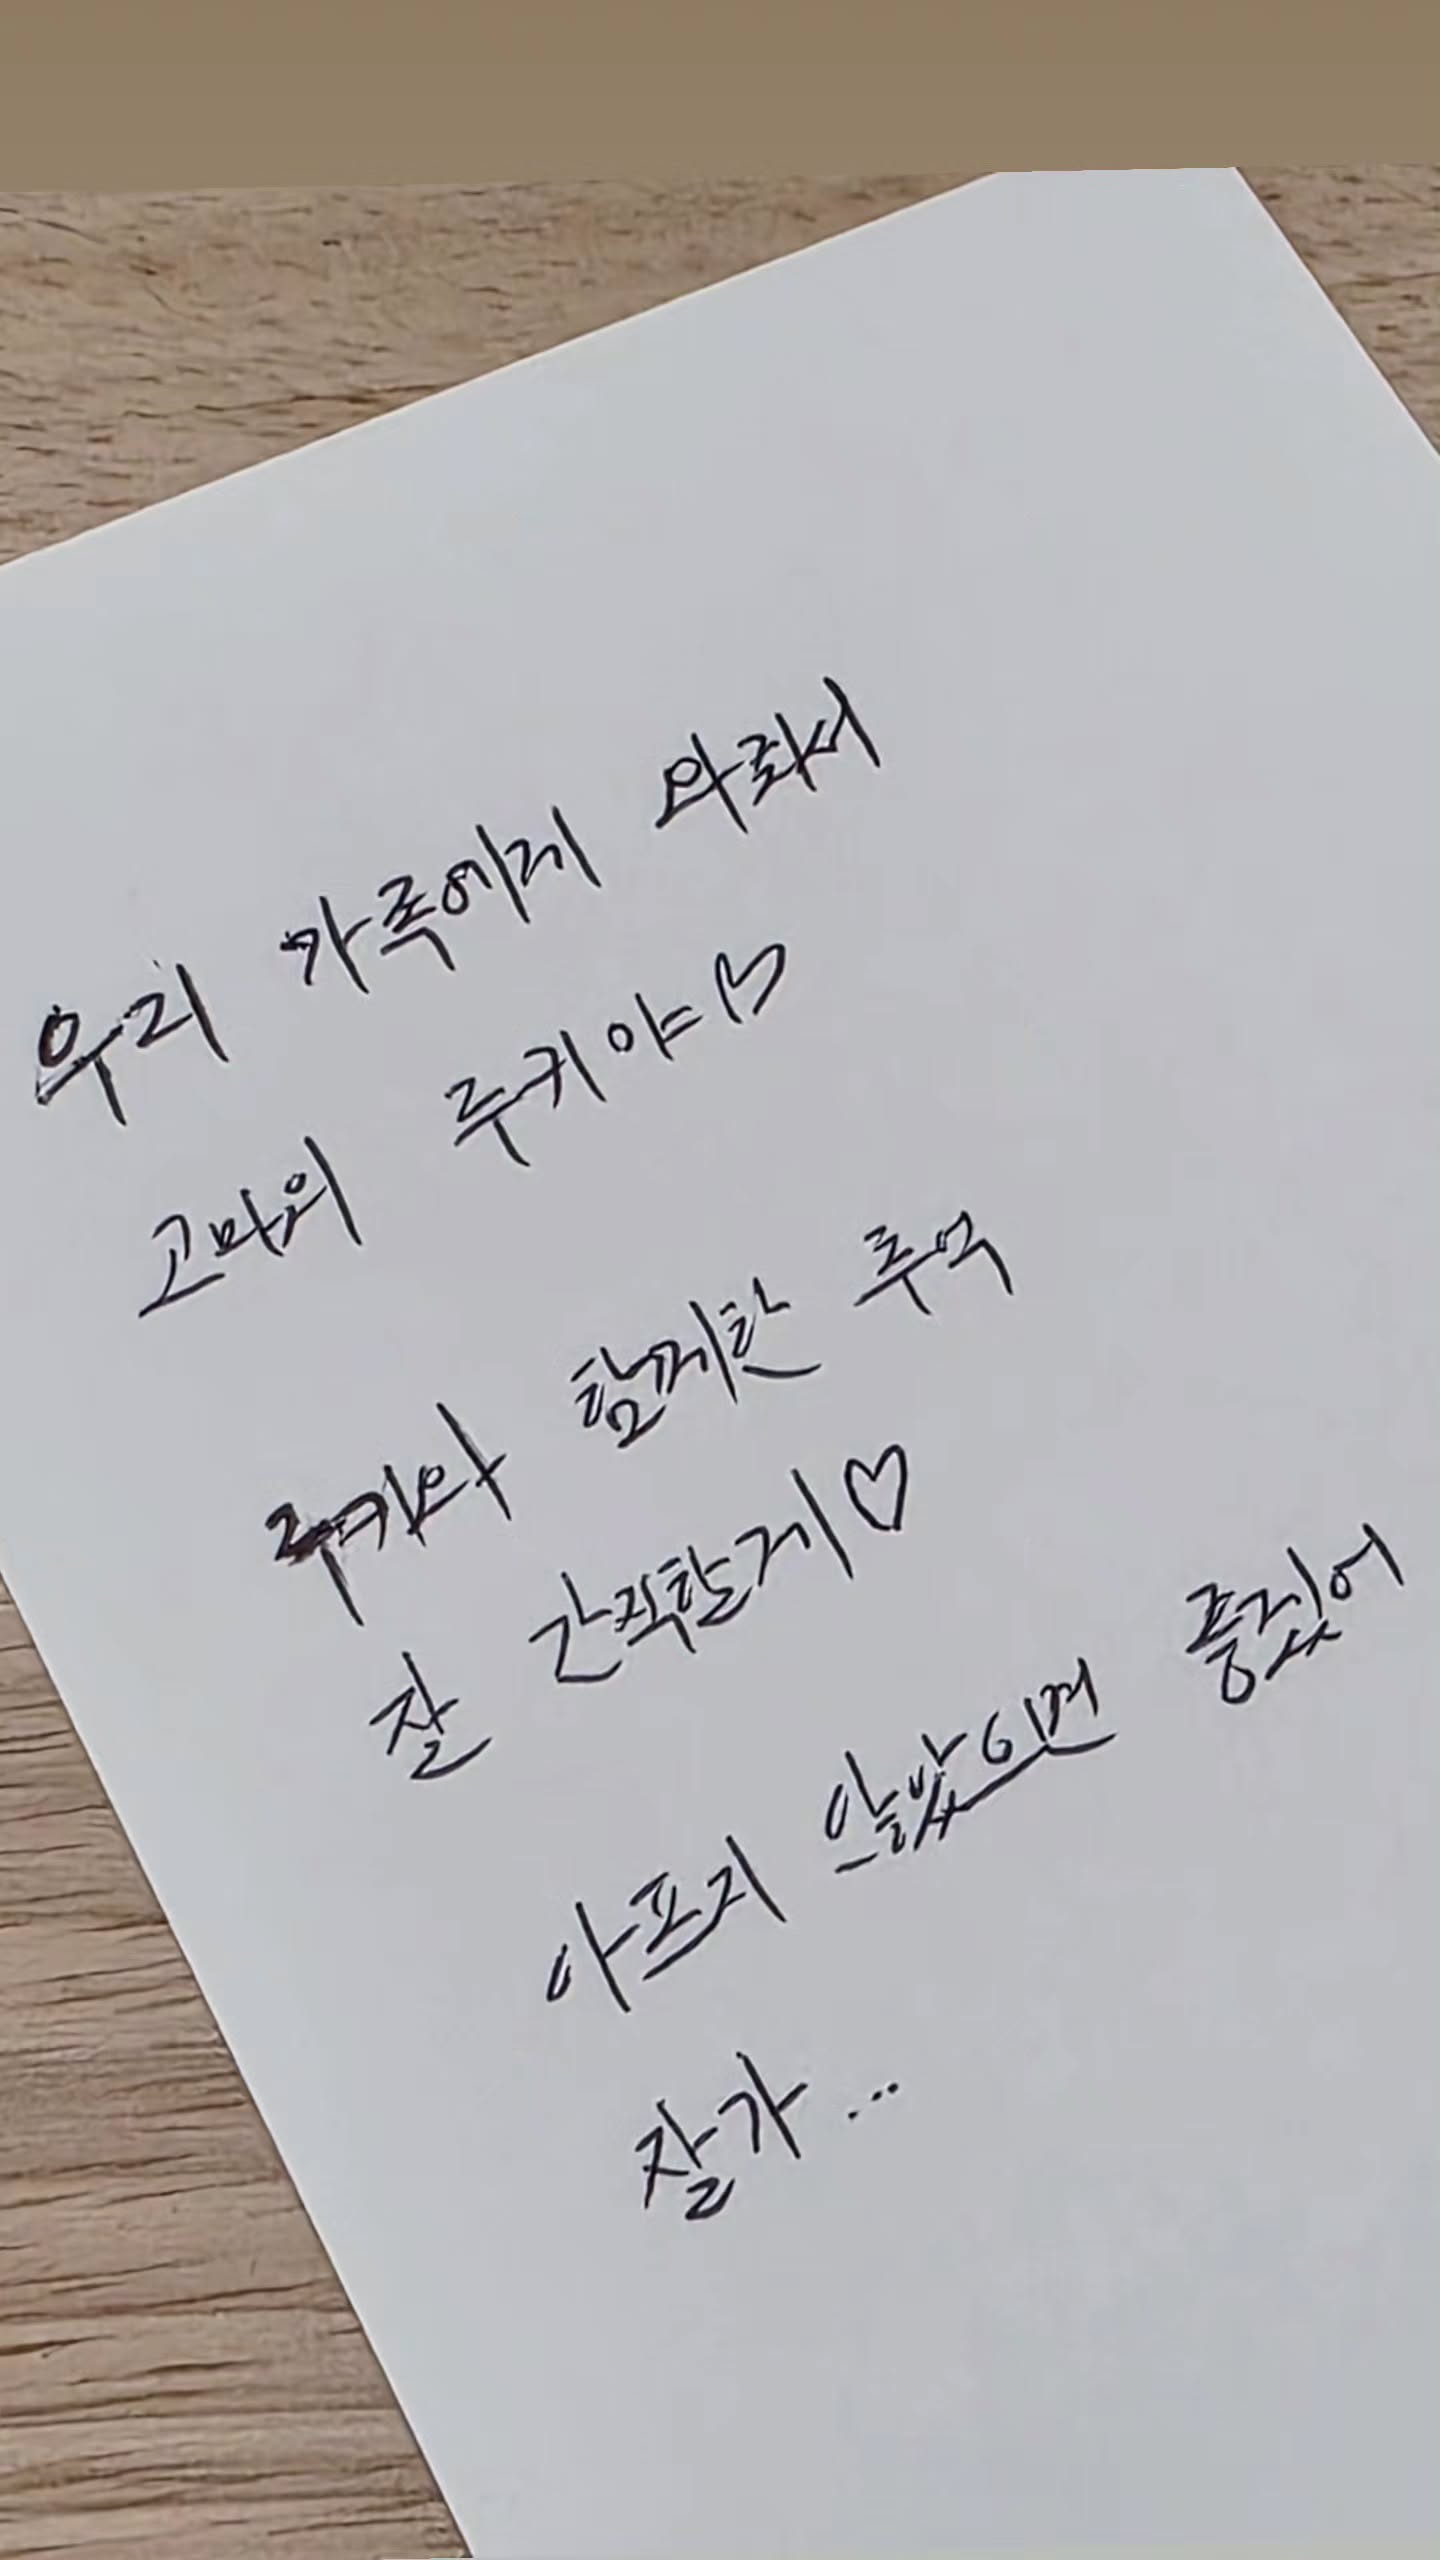 우리 가족에게 와줘서
고마워 루키야~♡
루키와 함께한 추억
잘 간직할게♡
아프지 않았으면 좋겠어
잘가...